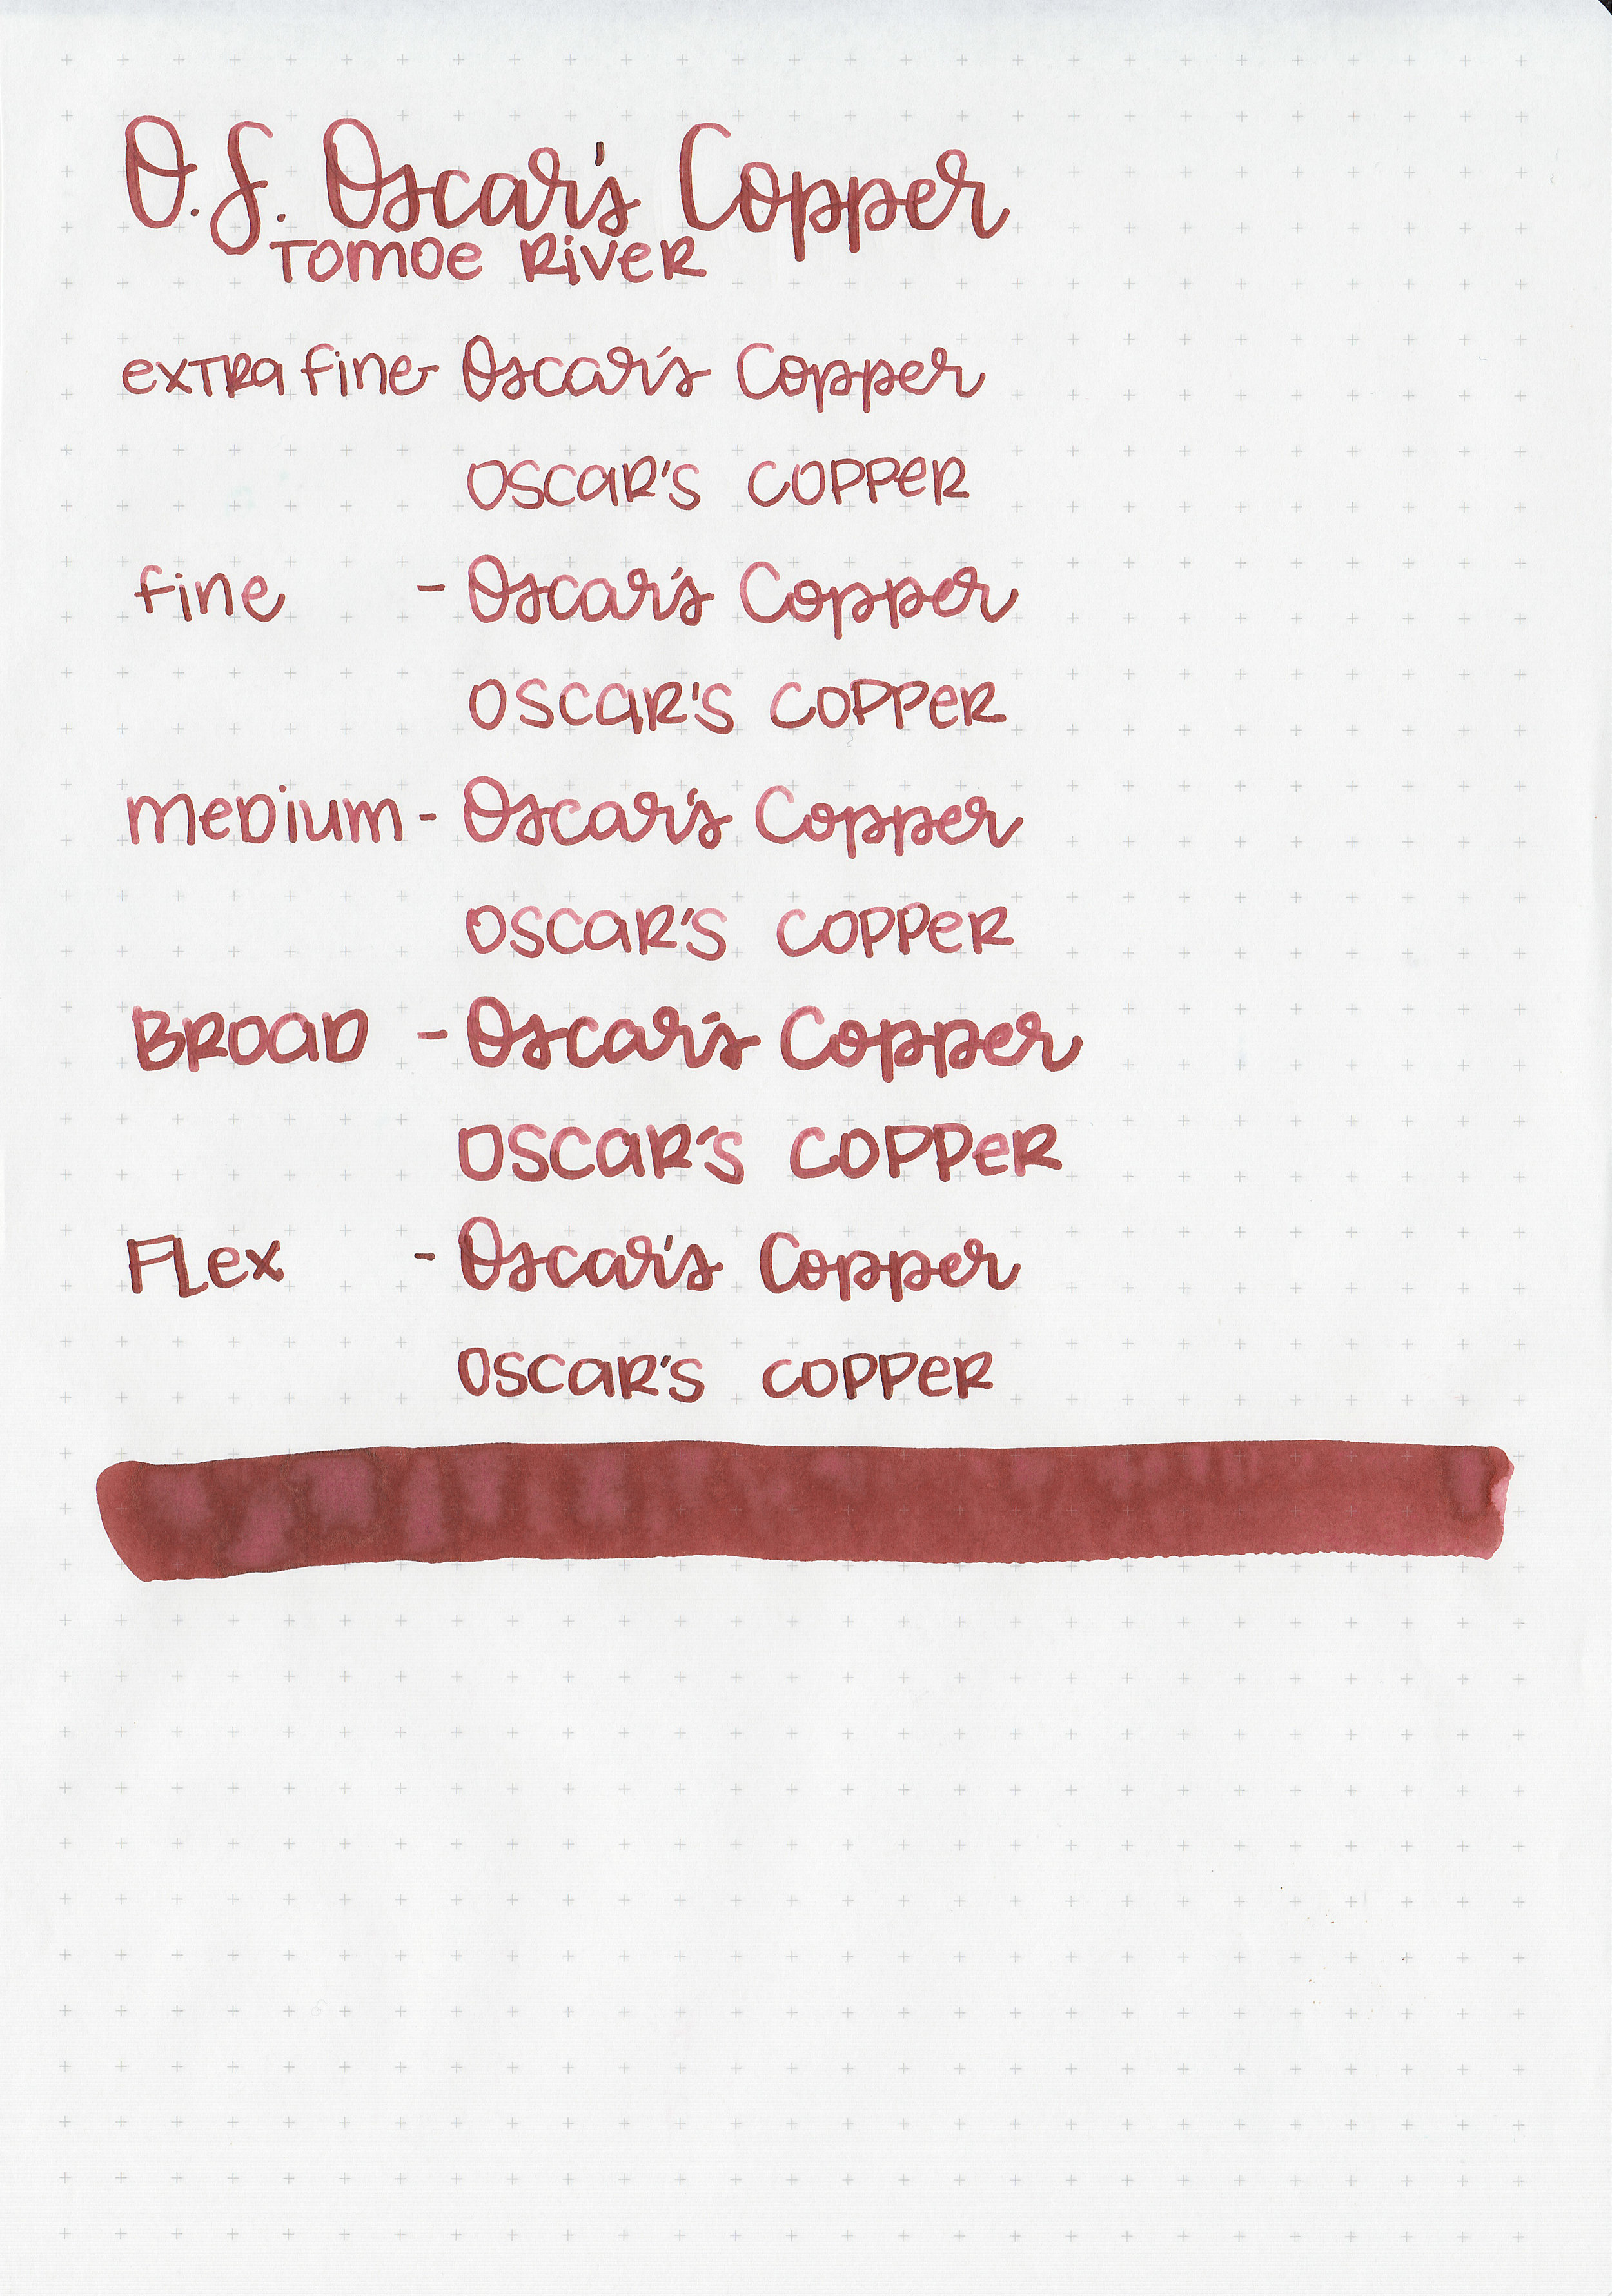 O.S. Oscar's Copper
Tomoe River
extra fine - Oscar's Copper
Oscar's Copper
fine - Oscar's Copper
Oscar's Copper
medium - Oscar's Copper
Oscar's Copper
Broad - Oscar's Copper
Oscar's Copper
Flex - Oscar's Copper
Oscar's Copper